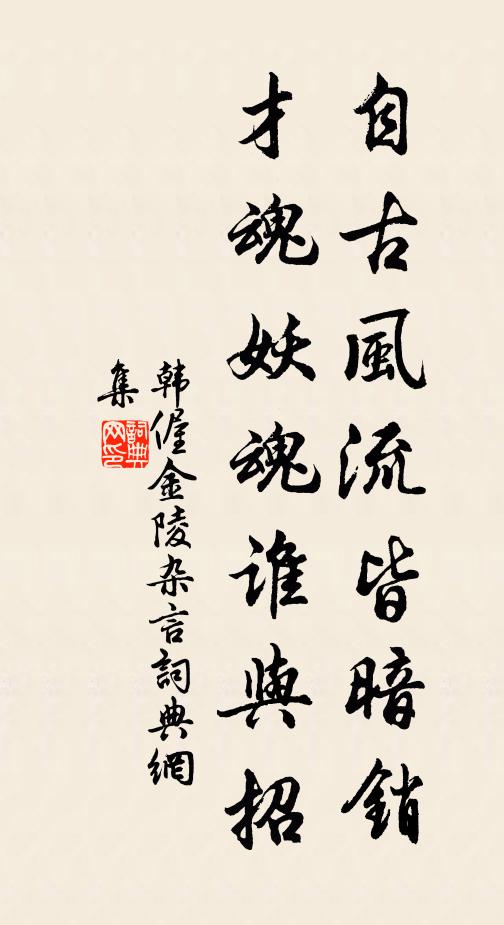 自古風流皆暗銷
才魂妖魂誰與招
韩偓金陵杂言詞典網
集
詞典
网印